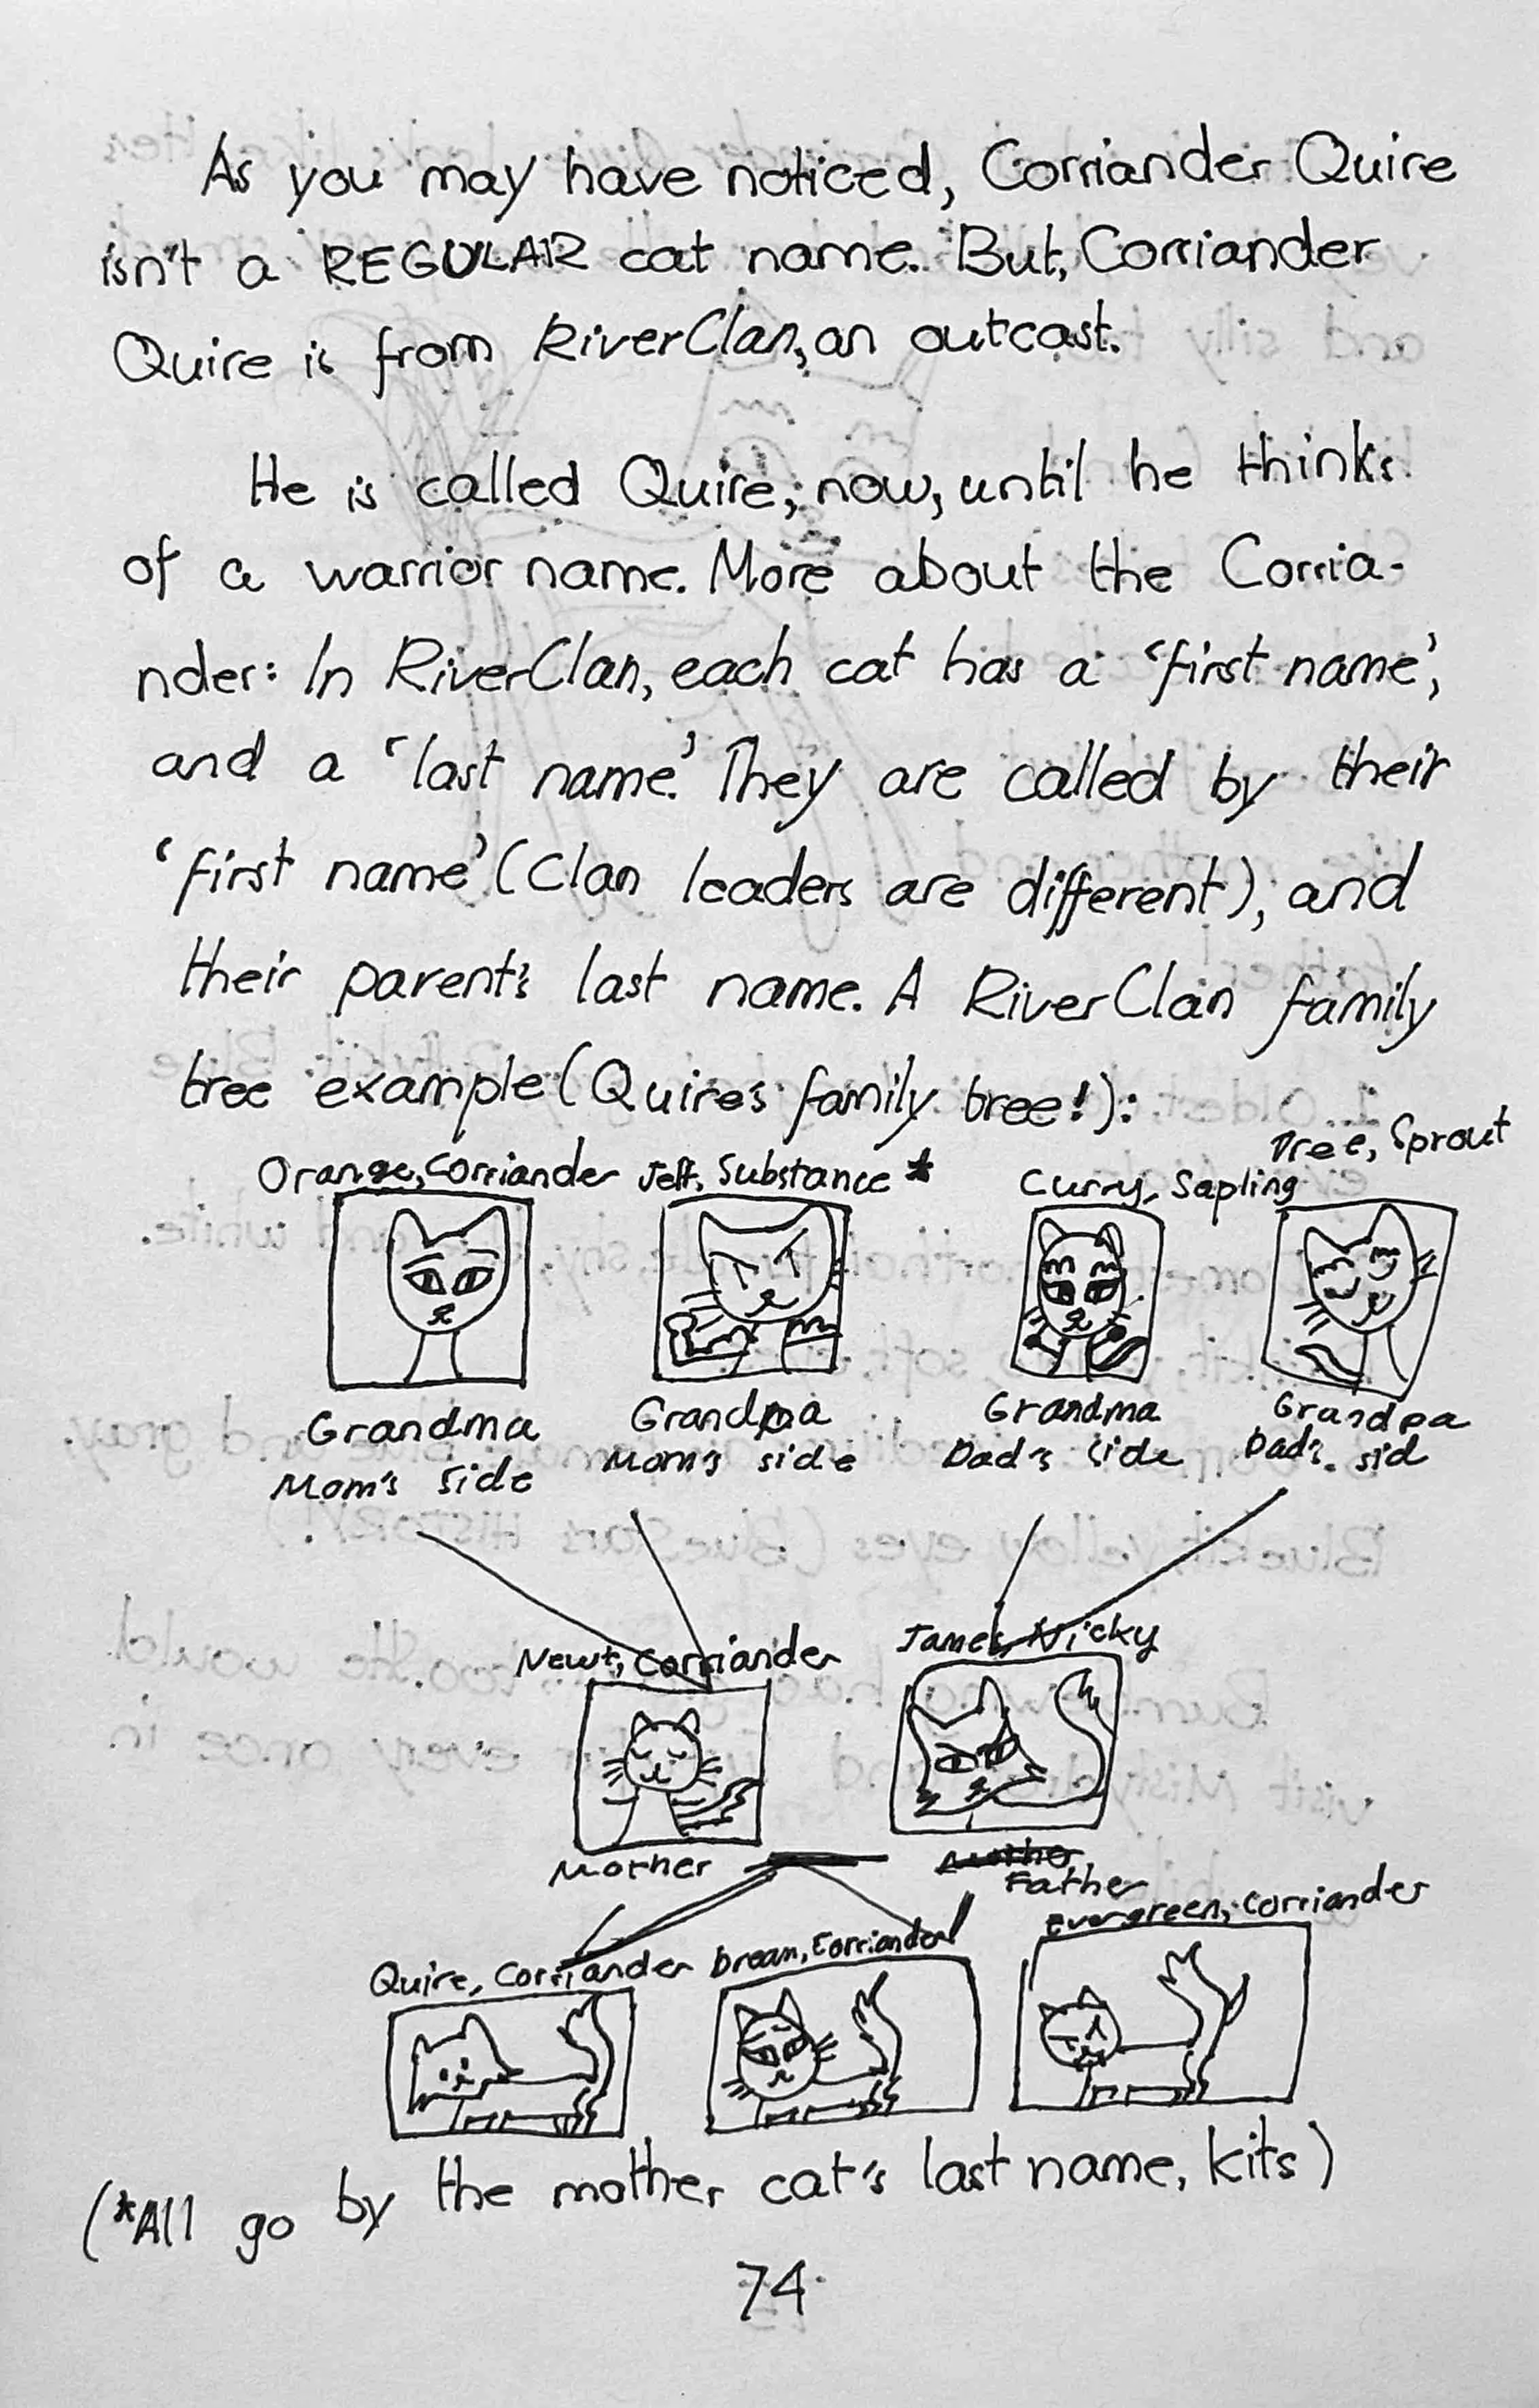 As you may have noticed, Corriander Quire
isn't a REGULAR cat name. But, Corriander
Quire is from RiverClan, an outcast.
He is called Quire, now, until he thinks
of a warrior name. More about the Corria-
nder: In RiverClan, each cat has a 'first name',
and a 'last name.' They are called by their
'first name' (Clan leaders are different), and
their parent's last name. A RiverClan family
tree example (Quire's family tree!):
Orange, Corriander Jeff, Substance * Curry, Sapling Tree, Sprout
Grandma Grandpa Grandma Grandpa
Mom's side Mom's side Dad's side Dad's sid
Newt, Corriander James, Nicky
Mother
Father
Quire, Corriander Dream, Corriander Evergreen, Corriander
(*All go by the mother cat's last name, kits)
74